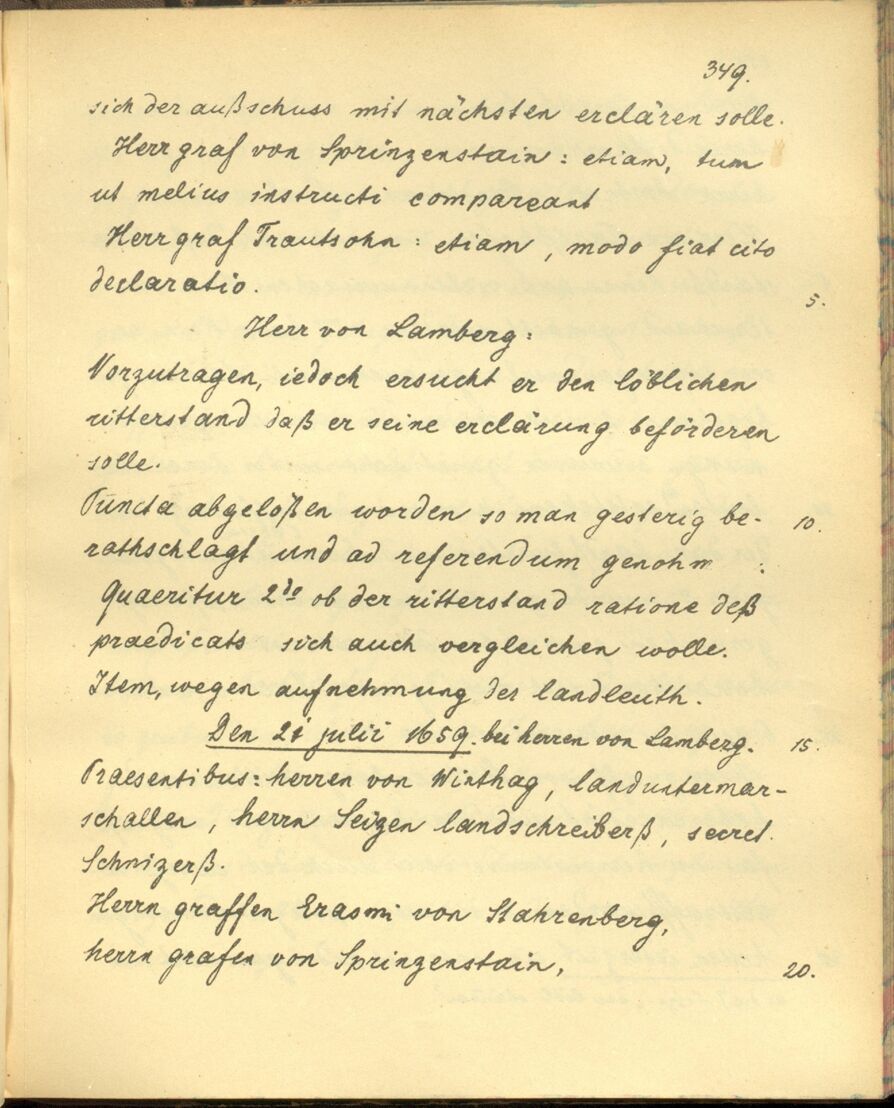 349.
sich der außschuss mit nächsten erclären solle.
Herr graf von Sprinzenstain: etiam, tum
ut melius instructi compareant
Herr graf Trautsohn: etiam, modo fiat cito
declaratio.
5.
Herr von Lamberg:
Vorzutragen, iedoch ersucht er den löblichen
ritterstand daß er seine erclärung beförderen
solle.
Puncta abgelößen worden so man gesterig be-
10.
rathschlagt und ad referendum genohm :
Quaeritur 2do ob der ritterstand ratione deß
praedicats sich auch vergleichen wolle.
Item, wegen aufnehmung der landleuth.
Den 21 julii 1659. bei herren von Lamberg.
15.
Praesentibus: herren von Winthag, landuntermar-
schallen, herrn Seizen landschreiberß, secret.
Schnizerß.
Herrn graffen Erasmi von Stahrenberg,
herrn grafen von Sprinzenstain,
20.